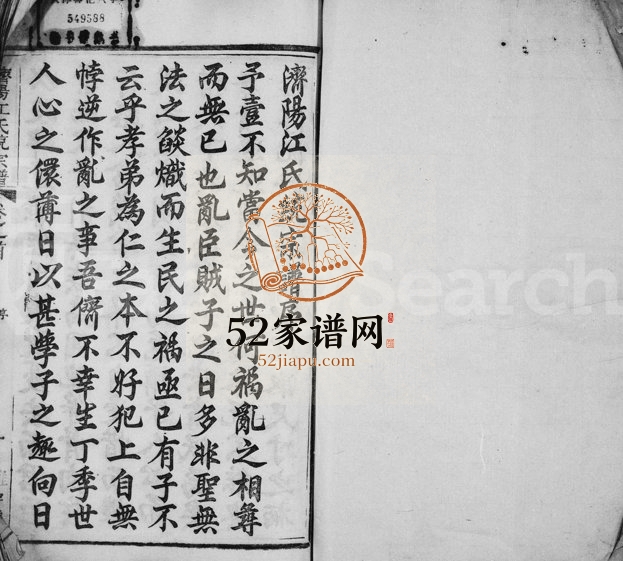 549588
濟陽江氏統宗譜序
予壹不知當今之世何禍亂之相尋
而無已也亂臣賊子之日多非聖無
法之燄熾而生民之禍亟已有子不
云乎孝弟為仁之本不好犯上自無
悖逆作亂之事吾儕不幸生丁季世
人心之儇薄日以甚學子之趨向日
濟陽江氏統宗譜
卷之首
序
52家谱网
52jiapu.com
Search